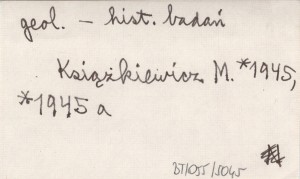 geol. – hist. badań
Książkiewicz M. *1945,
*1945 a
BT/055/5045